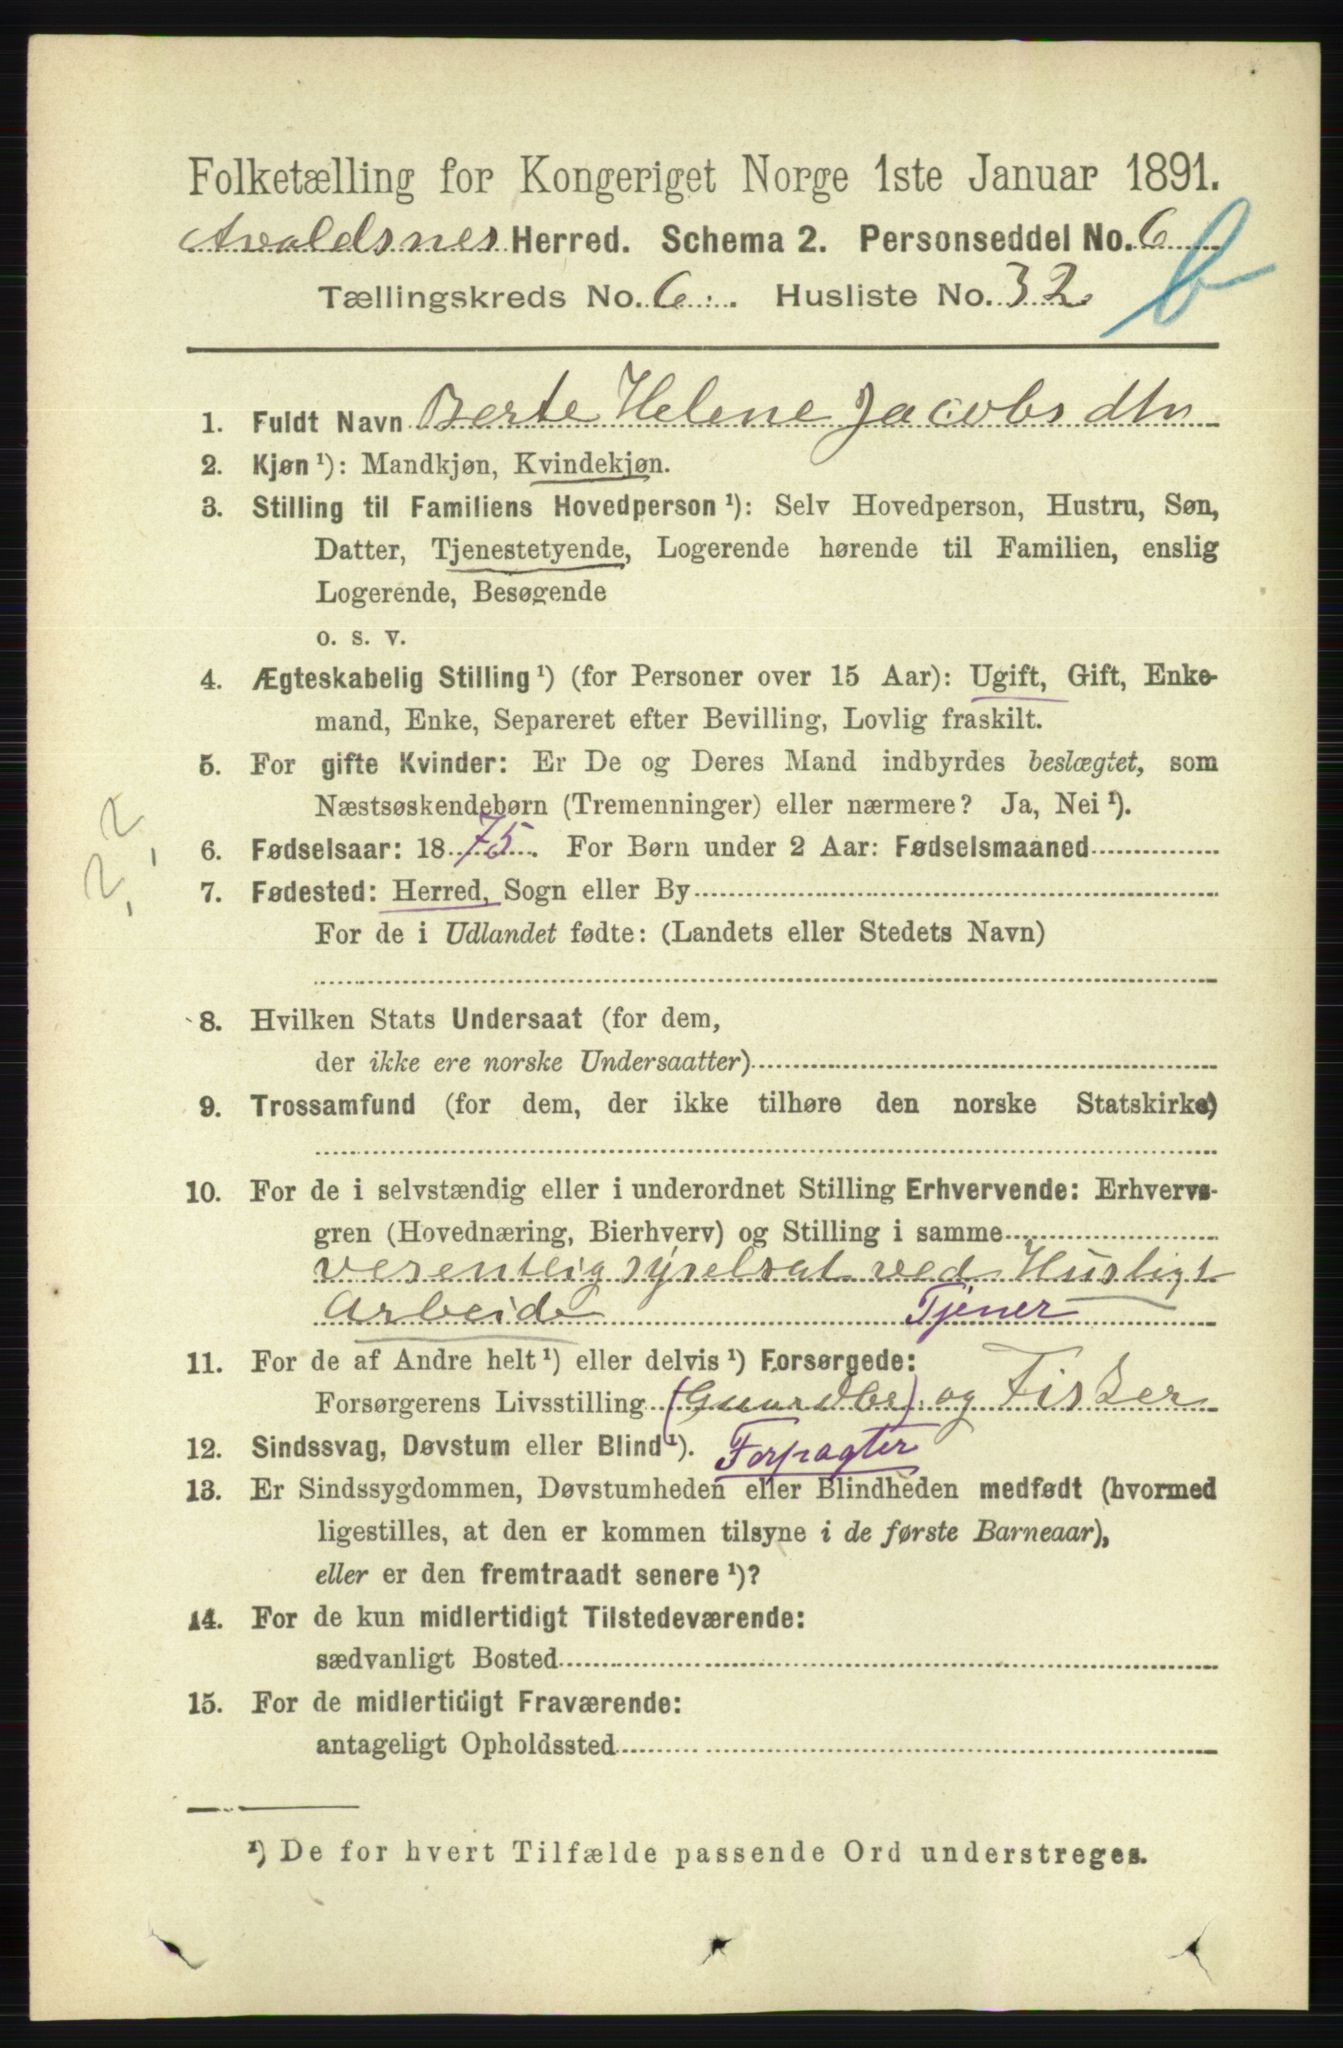 Folketælling for Kongeriget Norge 1ste Januar 1891.
Avaldsnes Herred. Schema 2. Personseddel No. 6
Tællingskreds No. 6. Husliste No. 32
b
1. Fuldt Navn Berte Helene Jacobsdtn
2. Kjøn ¹): Mandkjøn, Kvindekjøn.
3. Stilling til Familiens Hovedperson ¹): Selv Hovedperson, Hustru, Søn,
Datter, Tjenestetyende, Logerende hørende til Familien, enslig
Logerende, Besøgende
o. s. v.
4. Ægteskabelig Stilling ¹) (for Personer over 15 Aar): Ugift, Gift, Enke-
mand, Enke, Separeret efter Bevilling, Lovlig fraskilt.
5. For gifte Kvinder: Er De og Deres Mand indbyrdes beslægtet, som
Næstsøskendebørn (Tremenninger) eller nærmere? Ja, Nei ¹).
2,2
6. Fødselsaar: 1875. For Børn under 2 Aar: Fødselsmaaned
7. Fødested: Herred, Sogn eller By
For de i Udlandet fødte: (Landets eller Stedets Navn)
8. Hvilken Stats Undersaat (for dem,
der ikke ere norske Undersaatter)
9. Trossamfund (for dem, der ikke tilhøre den norske Statskirke)
10. For de i selvstændig eller i underordnet Stilling Erhvervende: Erhvervs-
gren (Hovednæring, Bierhverv) og Stilling i samme
vesentlig syselsat ved Husligt
Arbeide Tjener
11. For de af Andre helt ¹) eller delvis ¹) Forsørgede:
Forsørgerens Livsstilling (Gaardbr) og Fisker
12. Sindssvag, Døvstum eller Blind ¹). Forpagter
13. Er Sindssygdommen, Døvstumheden eller Blindheden medfødt (hvormed
ligestilles, at den er kommen tilsyne i de første Barneaar),
eller er den fremtraadt senere ¹)?
14. For de kun midlertidigt Tilstedeværende:
sædvanligt Bosted
15. For de midlertidigt Fraværende:
antageligt Opholdssted
¹) De for hvert Tilfælde passende Ord understreges.